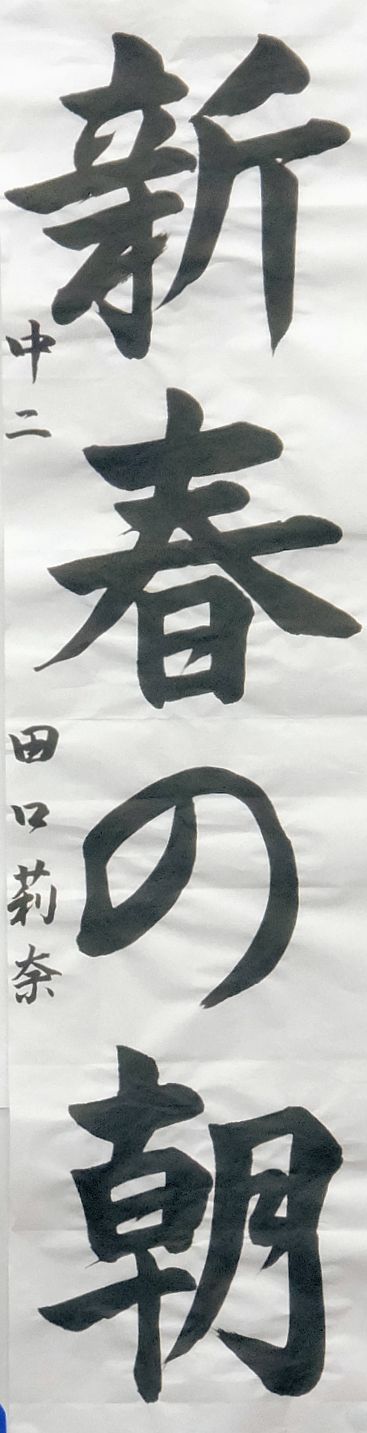 新春の朝
中二 田口莉奈